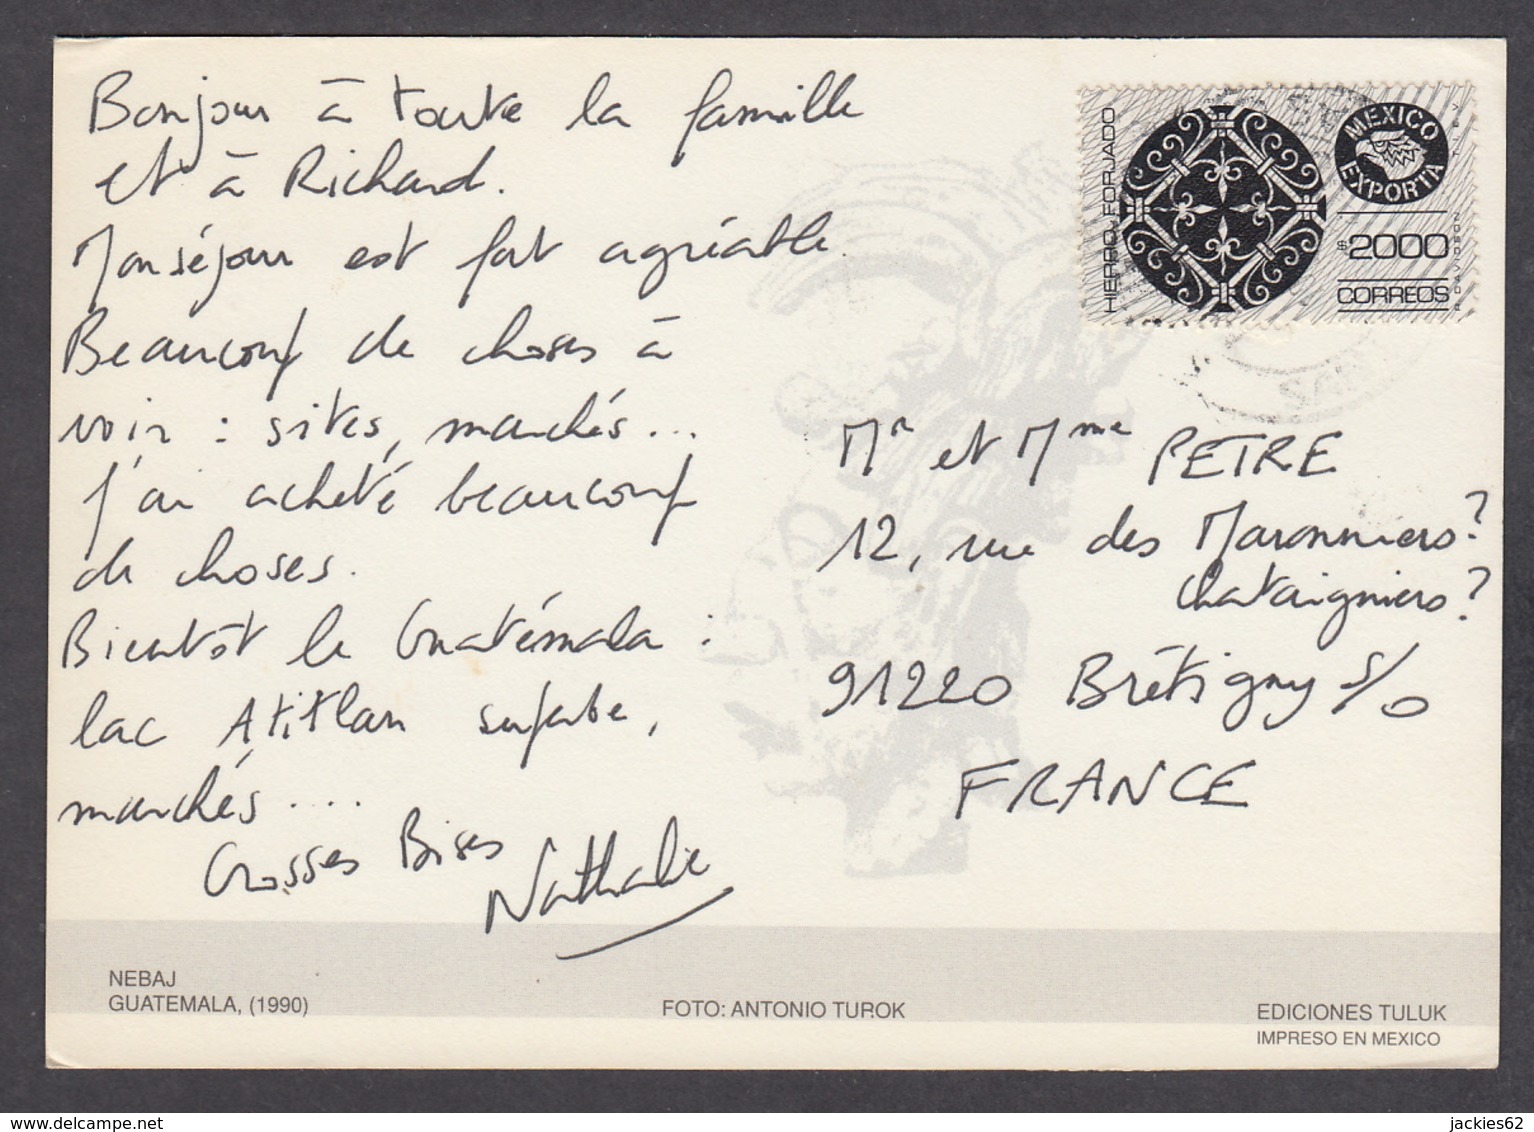 Bonjour à toute la famille
et à Richard.
Mon séjour est fort agréable.
Beaucoup de choses à
voir : sites, marchés...
J'ai acheté beaucoup
de choses.
Bientôt le Guatémala :
lac Atitlan superbe,
marchés ....
Grosses Bises
Nathalie
HIERRO FORJADO
MEXICO
EXPORTA
$2000
CORREOS
Mr et Mme PETRE
12, rue des Maronniers?
Chataigniers?
91220 Brétigny s/o
FRANCE
NEBAJ
GUATEMALA, (1990)
FOTO: ANTONIO TUROK
EDICIONES TULUK
IMPRESO EN MEXICO
www.delcampe.net
jackies62